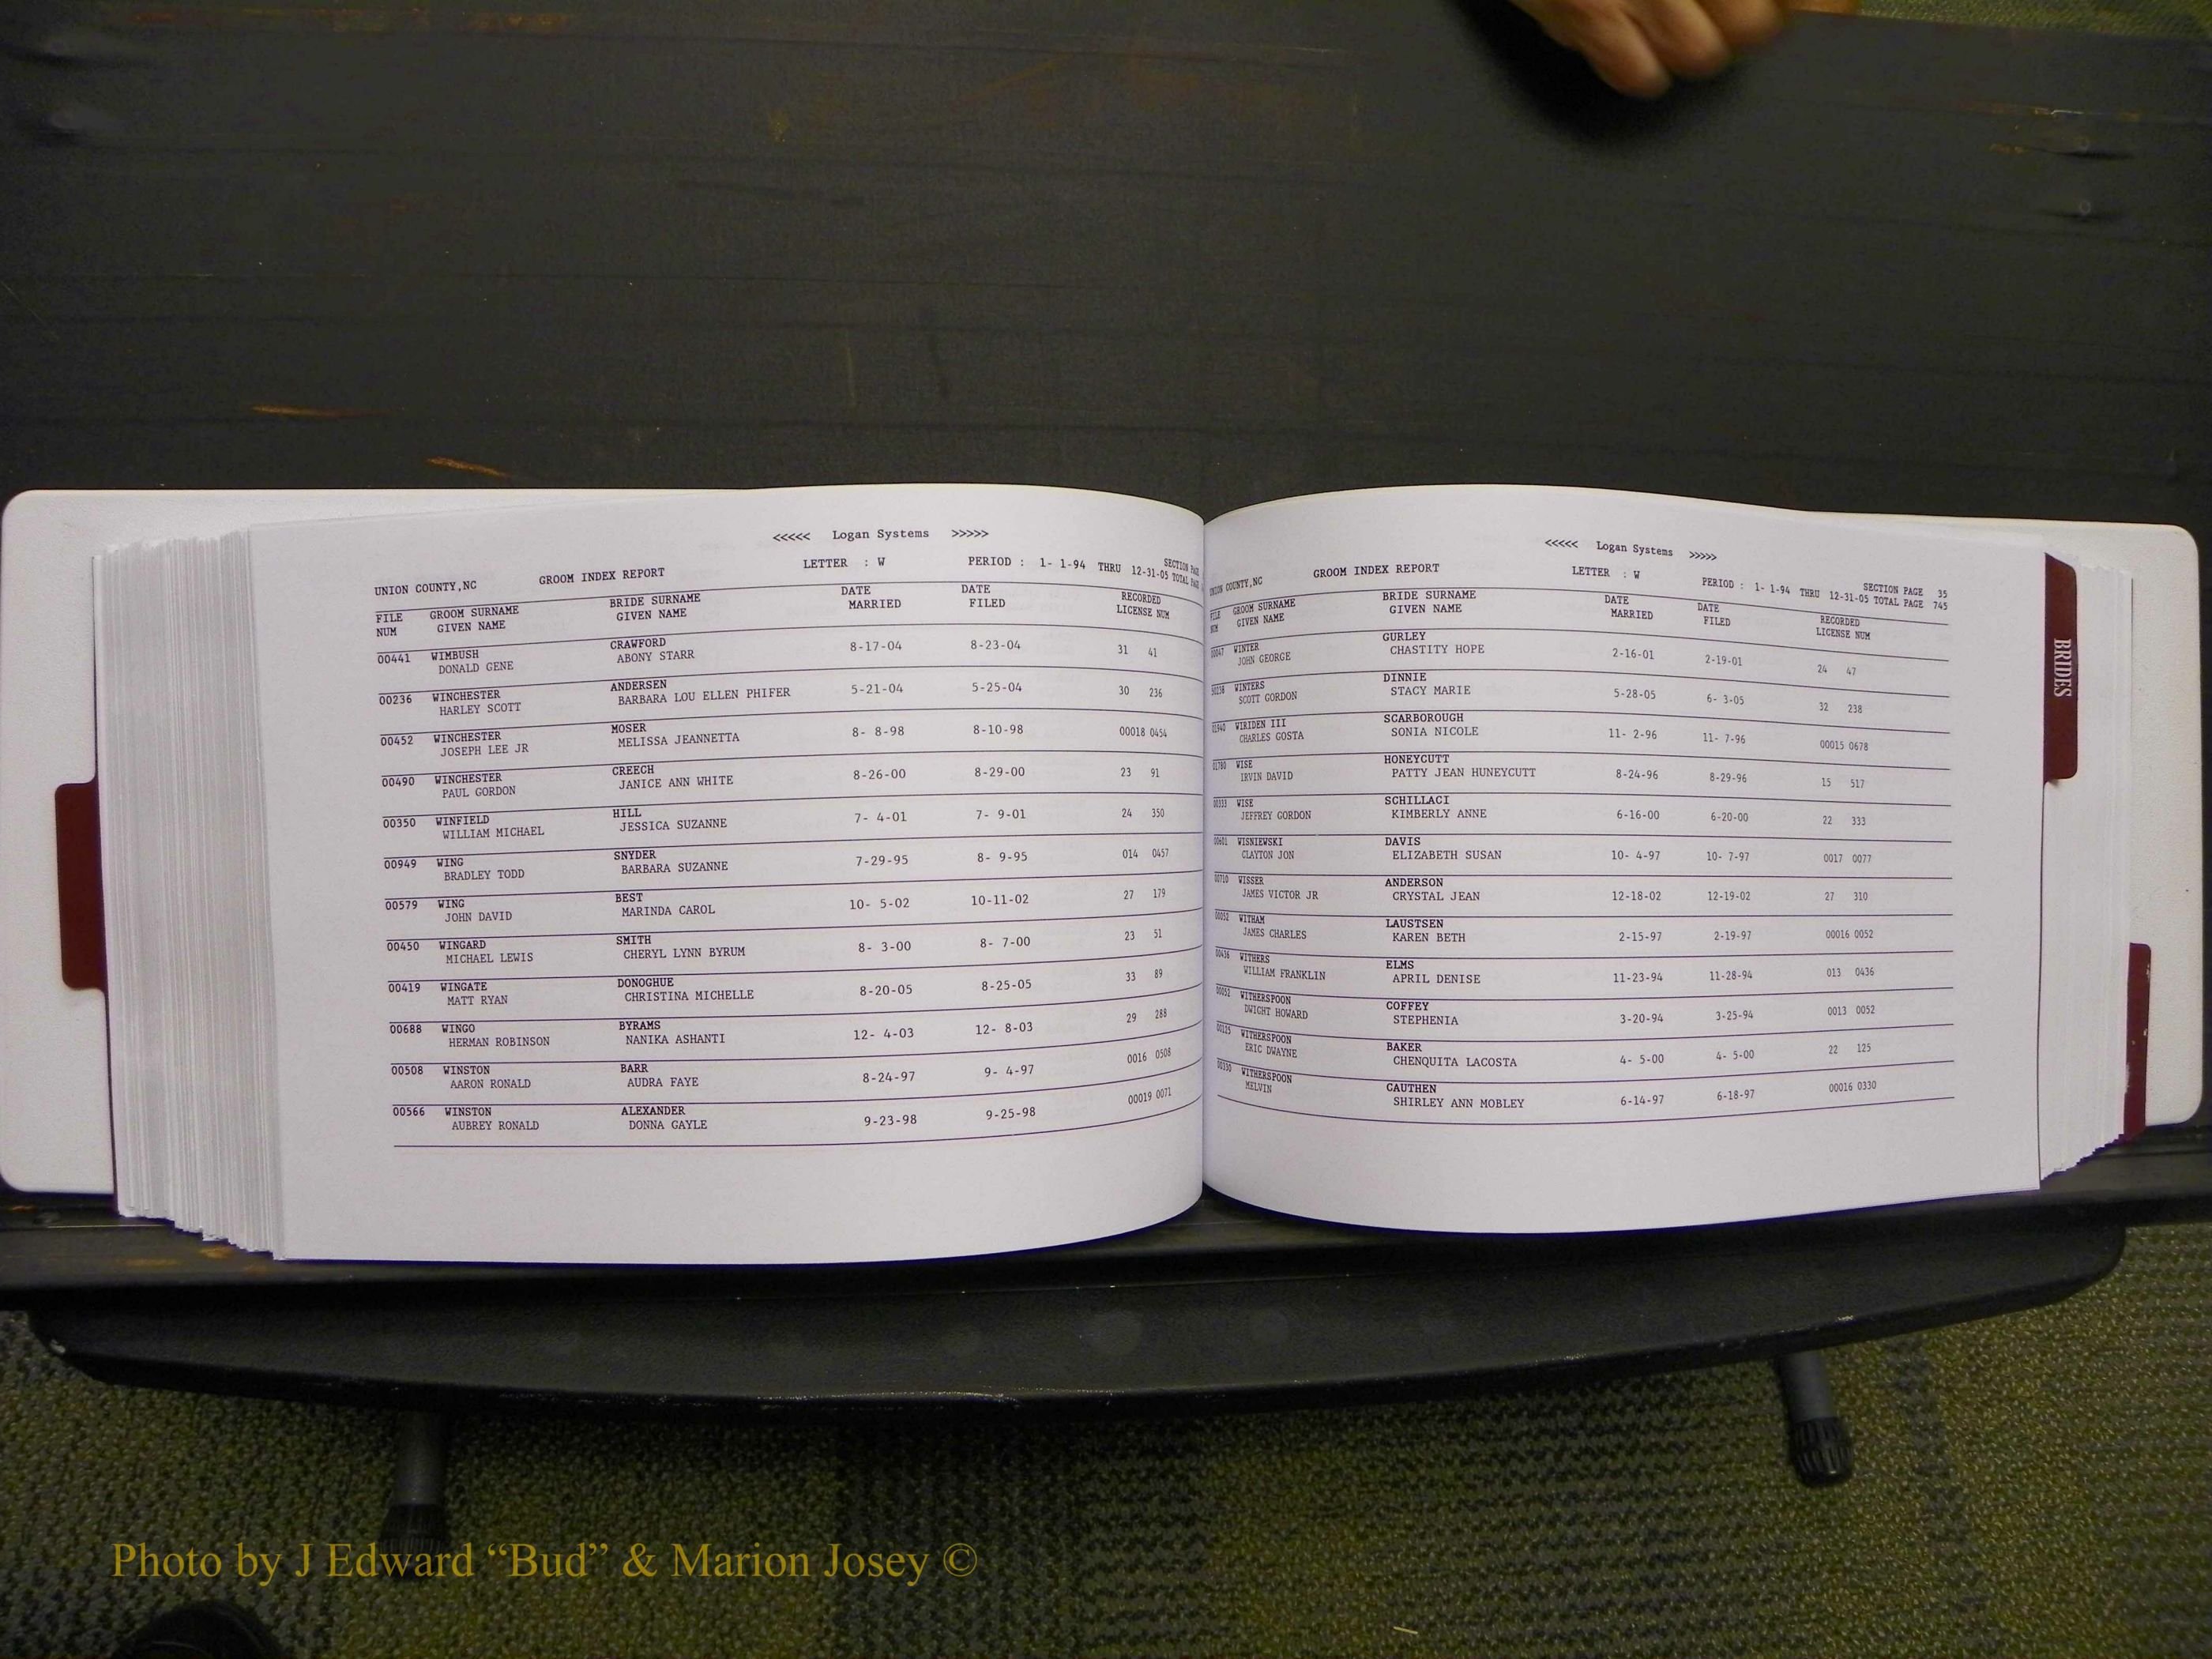 <<<<< Logan Systems >>>>>
UNION COUNTY,NC GROOM INDEX REPORT LETTER : W PERIOD : 1- 1-94 THRU 12-31-05 SECTION PAGE
TOTAL PAGE
FILE GROOM SURNAME BRIDE SURNAME DATE DATE RECORDED
NUM GIVEN NAME GIVEN NAME MARRIED FILED LICENSE NUM
00441 WIMBUSH CRAWFORD 8-17-04 8-23-04 31 41
DONALD GENE ABONY STARR
00236 WINCHESTER ANDERSEN 5-21-04 5-25-04 30 236
HARLEY SCOTT BARBARA LOU ELLEN PHIFER
00452 WINCHESTER MOSER 8- 8-98 8-10-98 00018 0454
JOSEPH LEE JR MELISSA JEANNETTA
00490 WINCHESTER CREECH 8-26-00 8-29-00 23 91
PAUL GORDON JANICE ANN WHITE
00350 WINFIELD HILL 7- 4-01 7- 9-01 24 350
WILLIAM MICHAEL JESSICA SUZANNE
00949 WING SNYDER 7-29-95 8- 9-95 014 0457
BRADLEY TODD BARBARA SUZANNE
00579 WING BEST 10- 5-02 10-11-02 27 179
JOHN DAVID MARINDA CAROL
00450 WINGARD SMITH 8- 3-00 8- 7-00 23 51
MICHAEL LEWIS CHERYL LYNN BYRUM
00419 WINGATE DONOGHUE 8-20-05 8-25-05 33 89
MATT RYAN CHRISTINA MICHELLE
00688 WINGO BYRAMS 12- 4-03 12- 8-03 29 288
HERMAN ROBINSON NANIKA ASHANTI
00508 WINSTON BARR 8-24-97 9- 4-97 0016 0508
AARON RONALD AUDRA FAYE
00566 WINSTON ALEXANDER 9-23-98 9-25-98 00019 0071
AUBREY RONALD DONNA GAYLE
<<<<< Logan Systems >>>>>
UNION COUNTY,NC GROOM INDEX REPORT LETTER : W PERIOD : 1- 1-94 THRU 12-31-05 SECTION PAGE 35
TOTAL PAGE 745
FILE GROOM SURNAME BRIDE SURNAME DATE DATE RECORDED
NUM GIVEN NAME GIVEN NAME MARRIED FILED LICENSE NUM
00047 WINTER GURLEY 2-16-01 2-19-01 24 47
JOHN GEORGE CHASTITY HOPE
00238 WINTERS DINNIE 5-28-05 6- 3-05 32 238
SCOTT GORDON STACY MARIE
01940 WIRIDEN III SCARBOROUGH 11- 2-96 11- 7-96 00015 0678
CHARLES GOSTA SONIA NICOLE
01780 WISE HONEYCUTT 8-24-96 8-29-96 15 517
IRVIN DAVID PATTY JEAN HUNEYCUTT
00333 WISE SCHILLACI 6-16-00 6-20-00 22 333
JEFFREY GORDON KIMBERLY ANNE
00601 WISNIEWSKI DAVIS 10- 4-97 10- 7-97 0017 0077
CLAYTON JON ELIZABETH SUSAN
00710 WISSER ANDERSON 12-18-02 12-19-02 27 310
JAMES VICTOR JR CRYSTAL JEAN
00052 WITHAM LAUSTSEN 2-15-97 2-19-97 00016 0052
JAMES CHARLES KAREN BETH
00436 WITHERS ELMS 11-23-94 11-28-94 013 0436
WILLIAM FRANKLIN APRIL DENISE
00052 WITHERSPOON COFFEY 3-20-94 3-25-94 0013 0052
DWIGHT HOWARD STEPHENIA
00125 WITHERSPOON BAKER 4- 5-00 4- 5-00 22 125
ERIC DWAYNE CHENQUITA LACOSTA
00330 WITHERSPOON CAUTHEN 6-14-97 6-18-97 00016 0330
MELVIN SHIRLEY ANN MOBLEY
BRIDES
Photo by J Edward “Bud” & Marion Josey ©